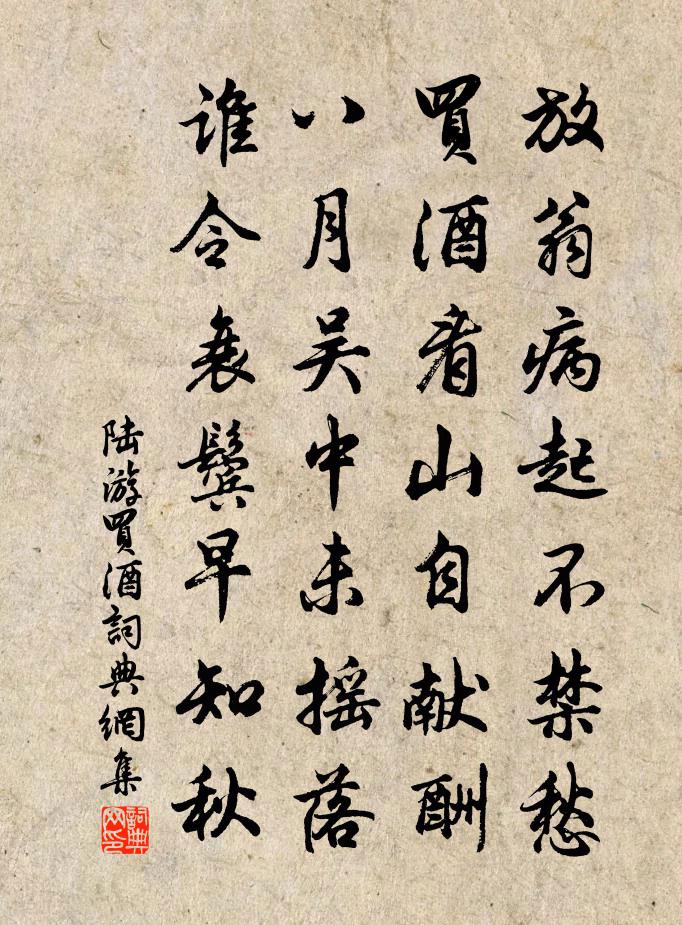 放翁病起不禁愁
買酒看山自献酬
八月吴中未摇落
谁令衰鬓早知秋
陆游買酒詞典網集
詞典
网印